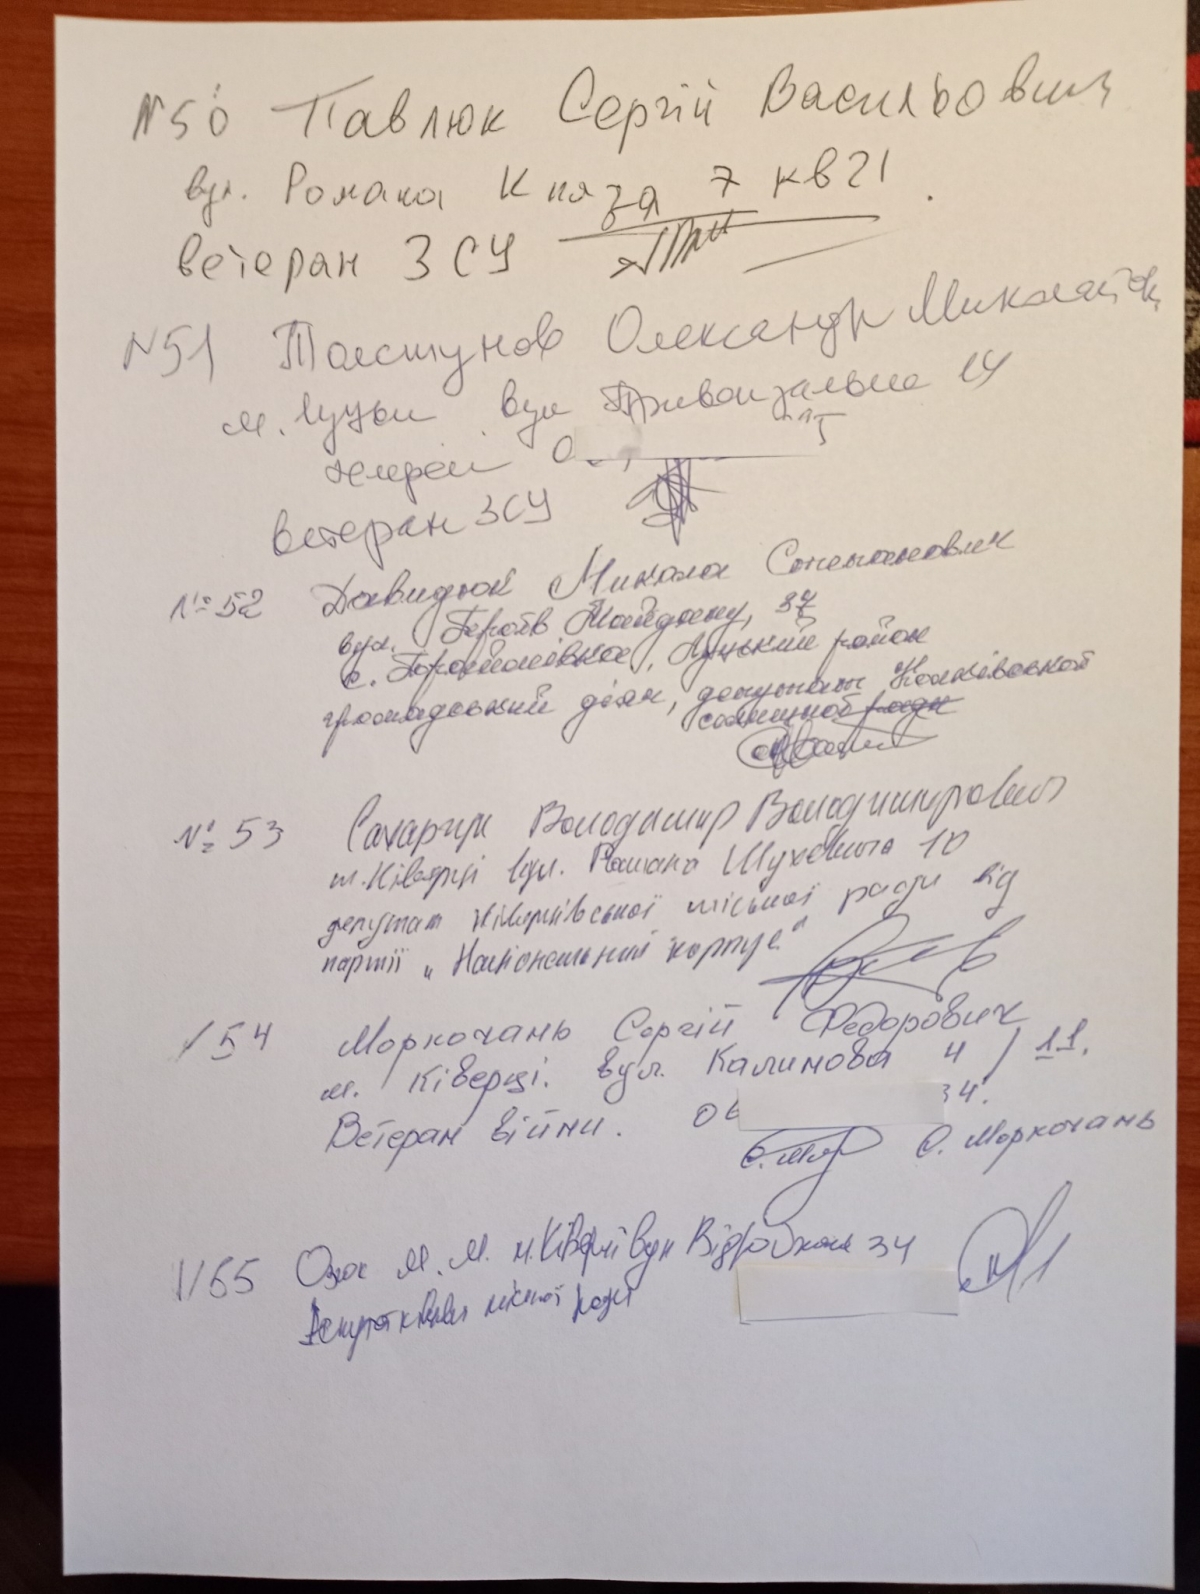 №50 Павлюк Сергій Васильович
вул. Романа Князя 7 кв 21.
ветеран ЗСУ
№51 Толстунов Олександр Миколайович
м. Луцьк вул Привокзальна 14
ветеран ЗСУ
№52 Давидюк Микола Степанович
вул. Героїв Майдану, 37
с. , Луцький район
громадський діяч, депутат
селищної ради
№53 Сахарчук Володимир Володимирович
м. Ківерці вул. Романа Шухевича 10
депутат Ківерцівської міської ради від
партії „Національний корпус"
№54 Моркочань Сергій Федорович
м. Ківерці. вул. Калинова 4/11.
Ветеран війни. 06 34.
С. Моркочань
№55 М.М. м. Ківерці вул 34
Депутат міської ради